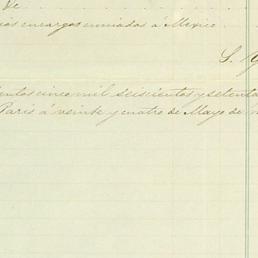 de
encargos enviados á Mexico
S.
cinco mil seiscientos y setenta
Paris á veinte y cuatro de Mayo de